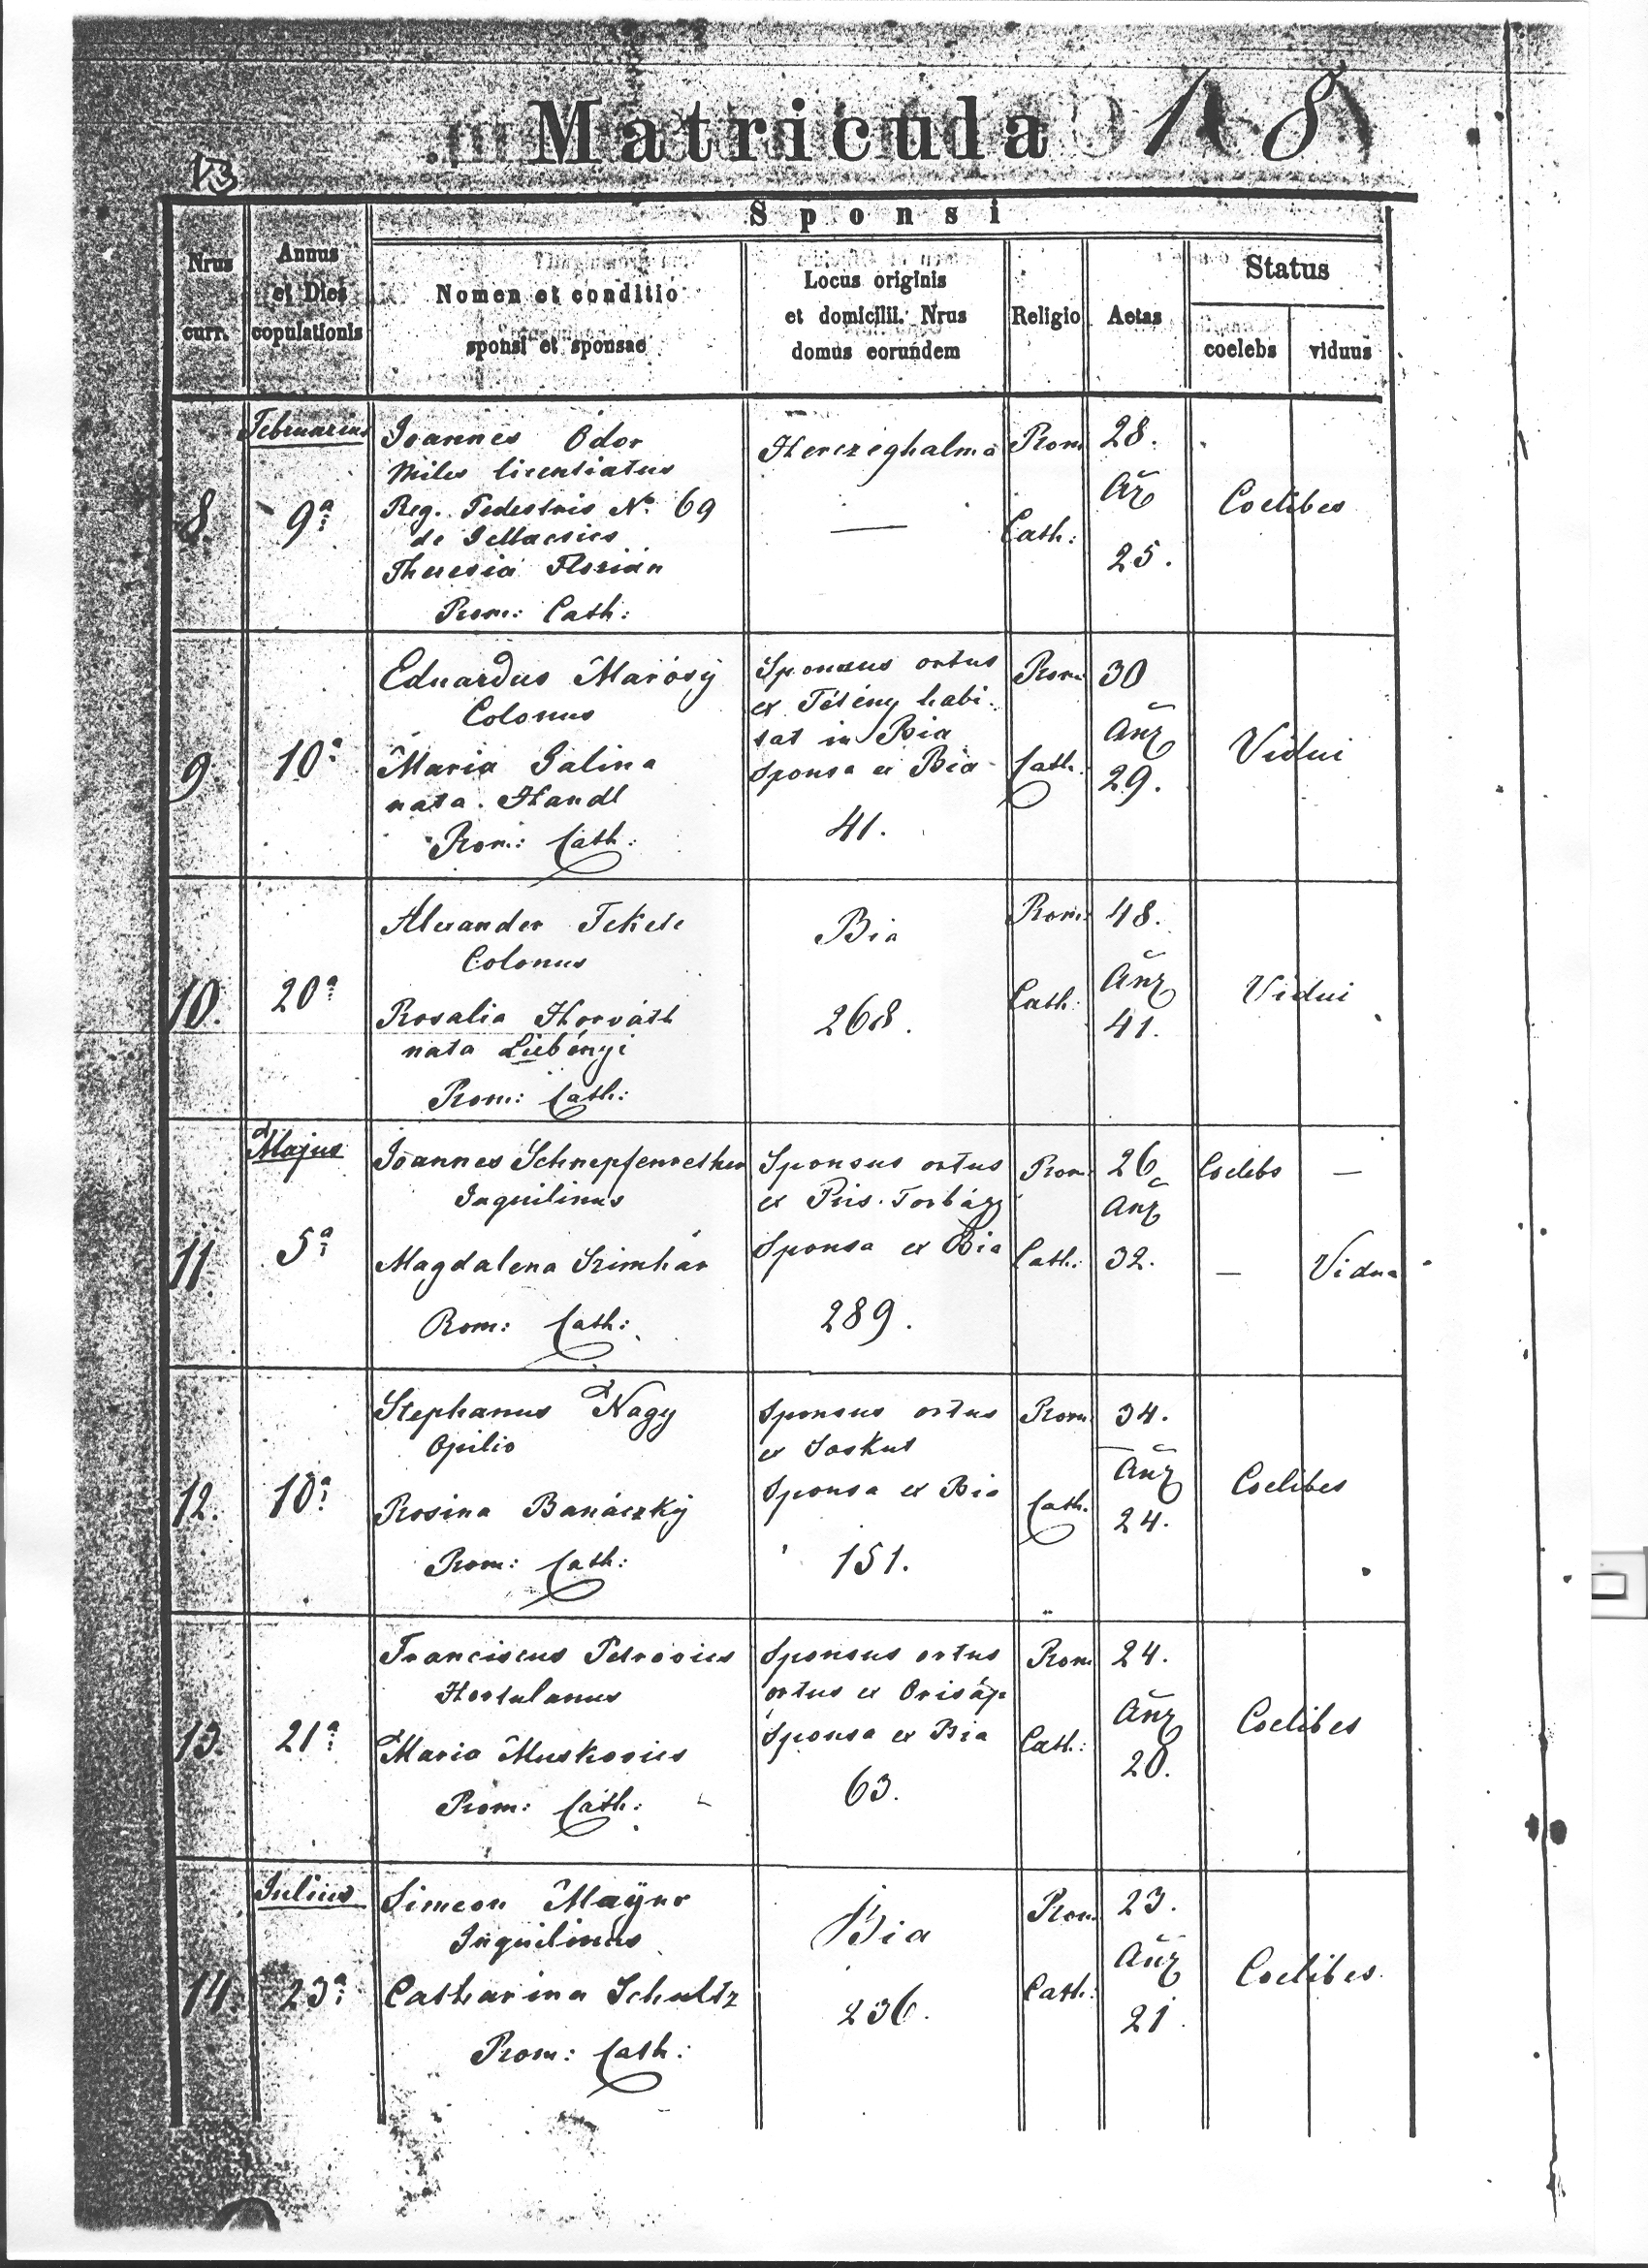 Matricuda 18
13
Sponsi
Nrus curr.
Annus et Dies copulationis
Nomen et conditio sponsi et sponsae
Locus originis et domicilii. Nrus domus eorundem
Religio
Aetas
Status
coelebs
viduus
Februarius
8.
9a
Joannes Ódor
Miles licentiatus
Reg. Pedestris No. 69
de Jellacsics
Theresia Florián
Rom: Cath:
Herczeghalma
—
Rom
Cath:
28.
Añ
25.
Coelibes
9
10a
Eduardus Marósy
Colonus
Maria Galina
nata. Handl
Rom: Cath:
Sponsus ortus
ex Tétény habi
tat in Bia
Sponsa ex Bia
41.
Rom
Cath.
30
Añ
29.
Vidui
10.
20a
Alexander Fekete
Colonus
Rosalia Horváth
nata Liebényi
Rom: Cath:
Bia
268.
Rom:
Cath:
48.
Añ
41.
Vidui
Majus
11.
5a
Joannes
Inquilinus
Magdalena Szimhár
Rom: Cath:
Sponsus ortus
ex Torbágy
Sponsa ex Bia
289.
Rom:
Cath:
26
Añ
32.
Coelebs —
— Vidua
12.
10a
Stephanus Nagy
Opilio
Rosina Banáczký
Rom: Cath:
Sponsus ortus
ex Soskut
Sponsa ex Bia
151.
Rom
Cath.
34.
Añ
24.
Coelibes
13.
21a
Franciscus Petrovics
Hortulanus
Maria Muskovics
Rom: Cath:
Sponsus ortus
ortus ex Orisáp
Sponsa ex Bia
63.
Rom
Cath:
24.
Añ
20.
Coelibes
Julius
14
23a
Simeon Mayer
Inquilinus
Catharina Schultz
Rom: Cath:
Bia
236.
Rom
Cath:
23.
Añ
21.
Coelibes.